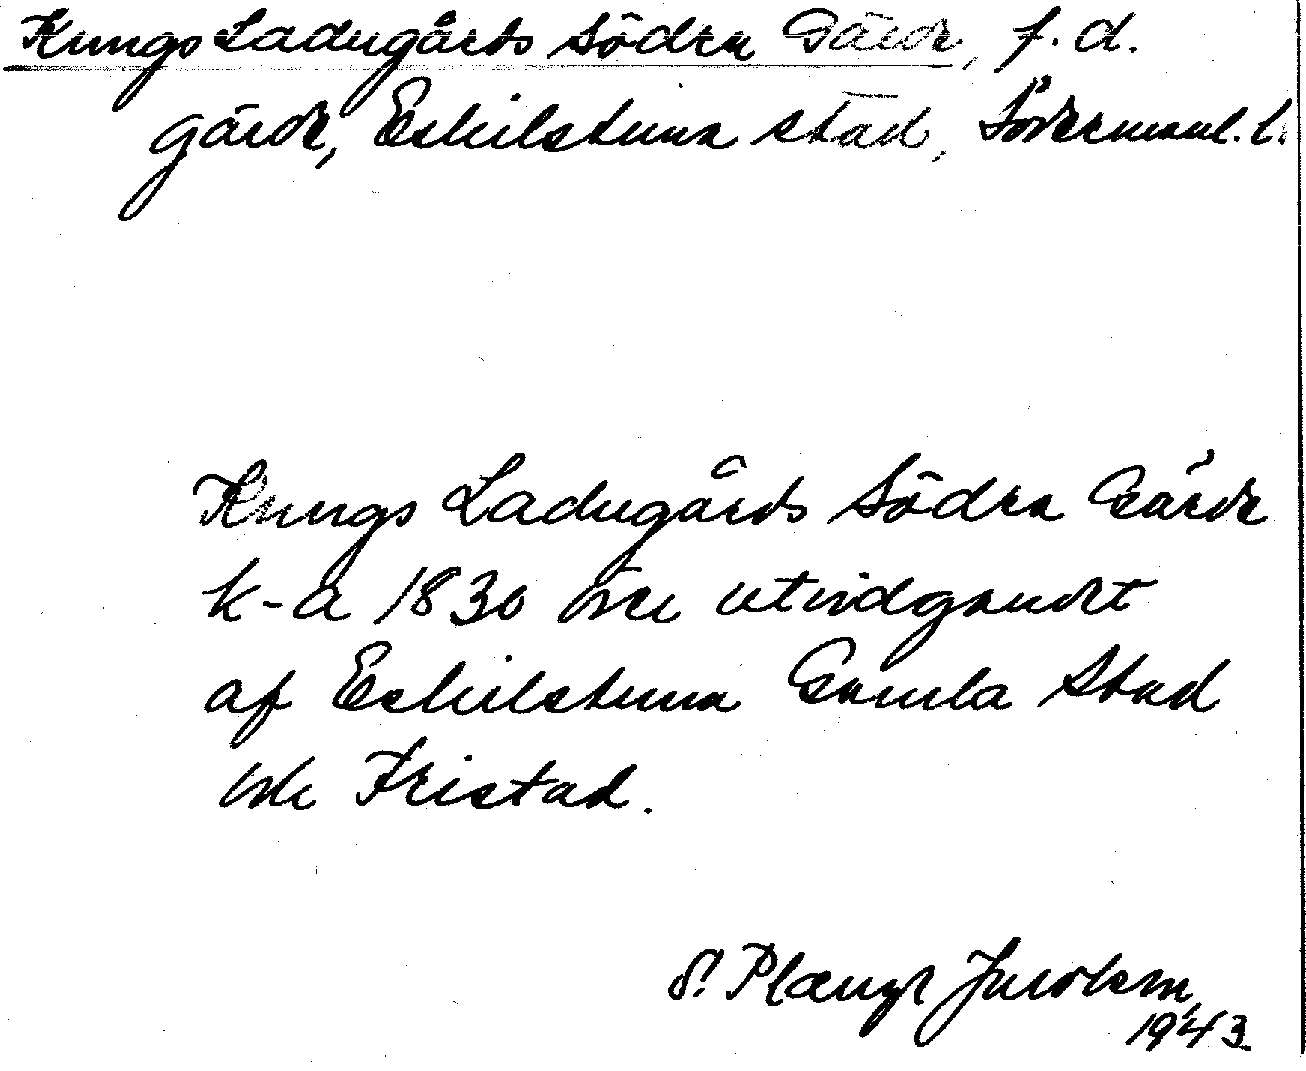 Kungs Ladugårds Södra Gärde, f.d.
gärde, Eskilstuna stad, Södermanl. l.
Kungs Ladugårds Södra Gärde
k-a 1830 över utvidgandet
af Eskilstuna Gamla Stad
och Fristad.
S. Jacobson
1943.